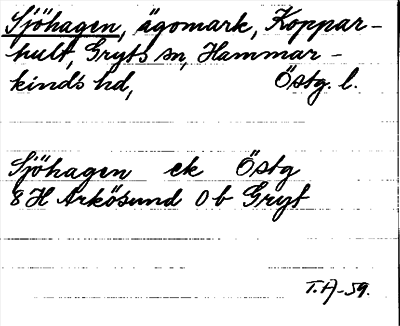 Sjöhagen, ägomark, Koppar-
hult, Gryts sn, Hammar-
kinds hd, Östg. l.
Sjöhagen ek Östg
8H Arkösund 0b Gryt
T.A-59.